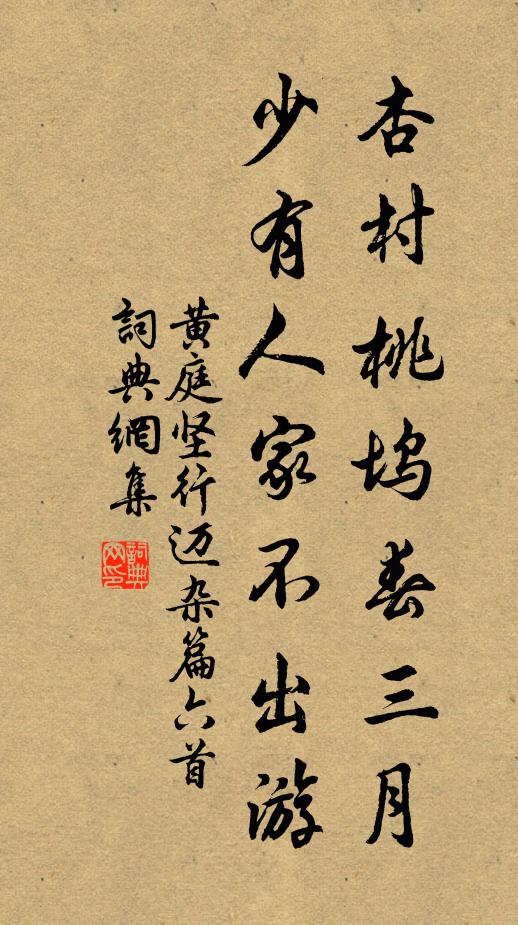 杏村桃坞春三月
少有人家不出游
黄庭坚行迈杂篇六首
詞典網集
詞典
网印